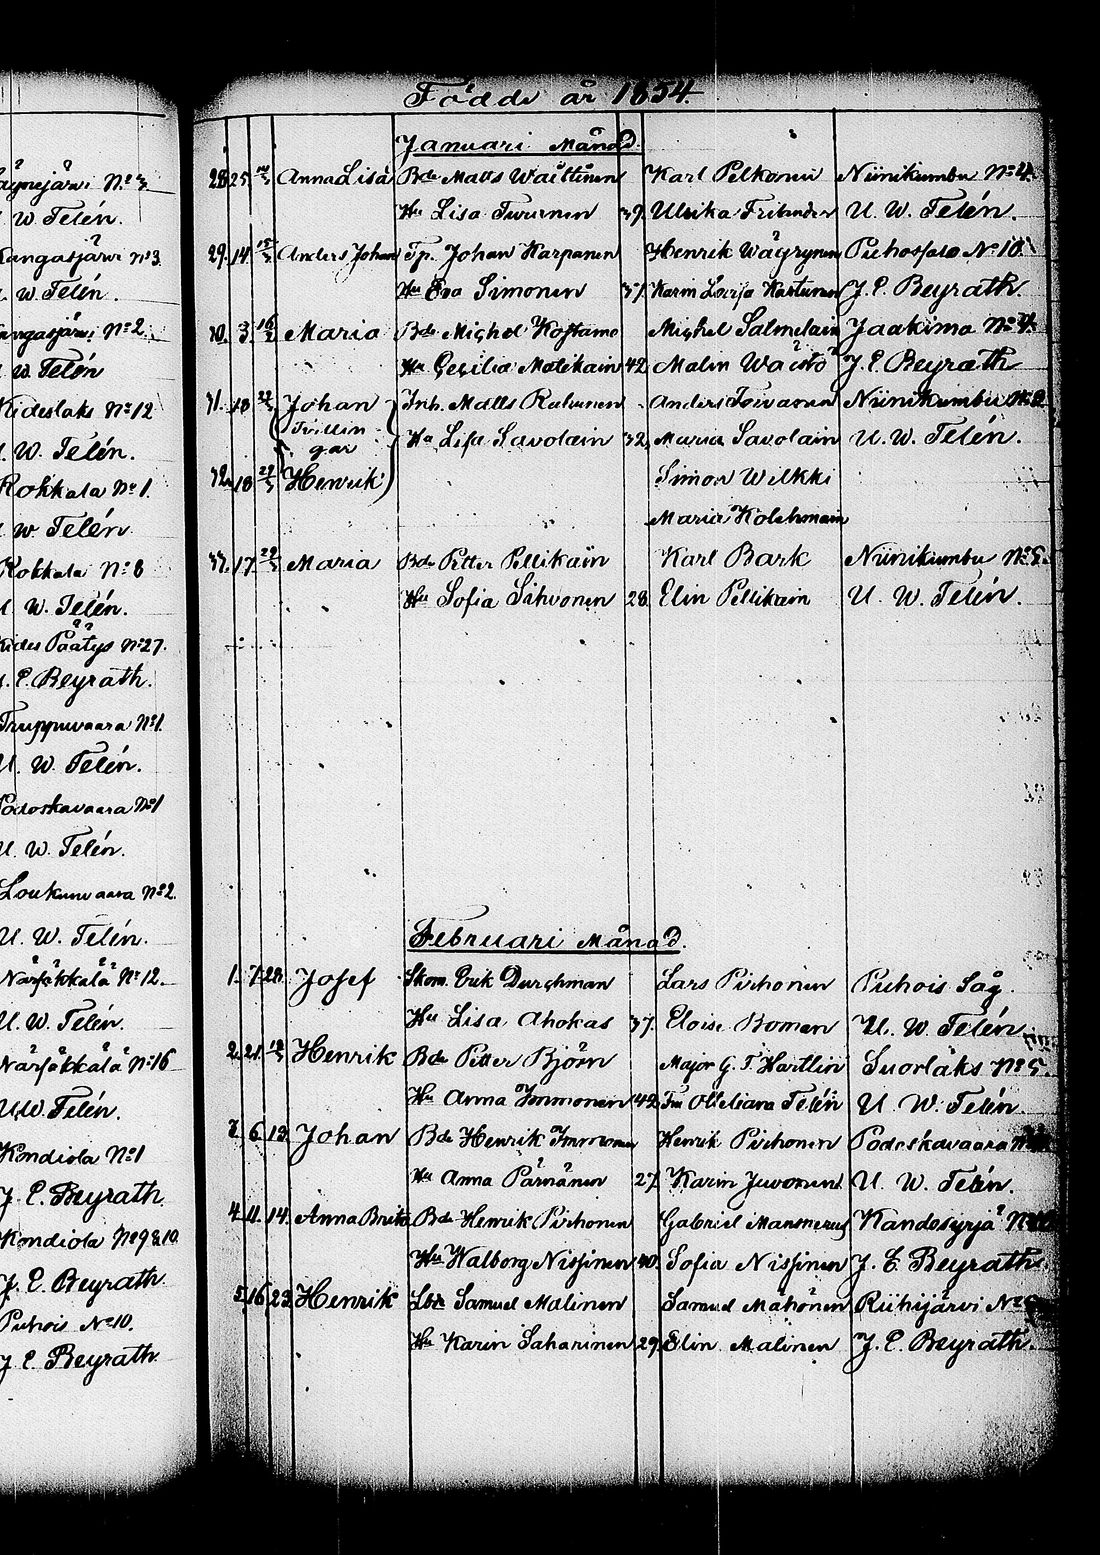 Födde år 1854.
ägnejärvi No 3
W. Telén.
Kangasjärvi No 3.
W. Telén.
Kangasjärvi No 2.
W. Telén
Kideslaks No 12
U. W. Telén.
Kokkala No 1.
U. W. Telén
Kokkala No 8
U. W. Telén.
Kides Päätys No 27.
J. E. Beyrath.
Truppuvaara No 1.
U. W. Telén.
Podoskavaara No 1
U. W. Telén.
Loukunvaara No 2.
U. W. Telén.
Närsäkkälä No 12.
U. W. Telén.
Närsäkkälä No 16
U. W. Telén.
Kondiola No 1
J. E. Beyrath
Kondiola No 9 & 10.
J. E. Beyrath
Puhois No 10.
J. E. Beyrath
Januari Månad.
28. 25. Anna Lisa Bde Matts Wäittinen Karl Pelkonen Niinikumbu No 4.
Hu Lisa Turunen 39. Ulrika Frilander U. W. Telén.
29. 14. Anders Johan Tp. Johan Karpanen Henrik Wäyrynen Puhossalo No 10.
Hu Eva Simonen 31. Karin Kasturinen J. E. Beyrath.
30. 3. Maria Bde Michel Kostamo Michel Salmelain Jaakima No 4.
Hu Cecilia Malikain 42. Malin J. E. Beyrath
31. 18 Johan Inh. Matts Rahunen Anders Toivanen Niinikumbu
Trillin
gar Hu Lisa Savolain 32, Maria Savolain U. W. Telén.
32. 18 Henrik Simon Wilkki
Maria Kolehmain
33. 17. Maria Bde Petter Pellikain Karl Bark Niinikumbu No 5.
Hu Sofia Sihvonen 28. Elin Pellikain U. W. Telén.
Februari Månad.
1. 7. 28. Josef Skom. Erik Durchman Lars Pirhonen Puhois Såg.
Hu Lisa Ahokas 37. Eloise Boman U. W. Telén
2. 21. Henrik Bde Petter Björn Major G. F. Hartlin Suorlaks No 5.
Hu Anna Immonen 42. Fru Ottiliana Telén U. W. Telén.
3. 6. 13. Johan Bde Henrik Immonen Henrik Pirhonen Podoskavaara
Hu Anna Pärnänen 27. Karin Juvonen U. W. Telén.
4. 11. 14. Anna Brita Bde Henrik Pirhonen Gabriel Mansnerus Kandosyrjä
Hu Walborg Nissinen 40. Sofia Nissinen J. E. Beyrath
5. 16. 23. Henrik Lbde Samuel Malinen Samuel Mähönen Riihijärvi
Hu Karin Saharinen 29. Elin Malinen J. E. Beyrath.